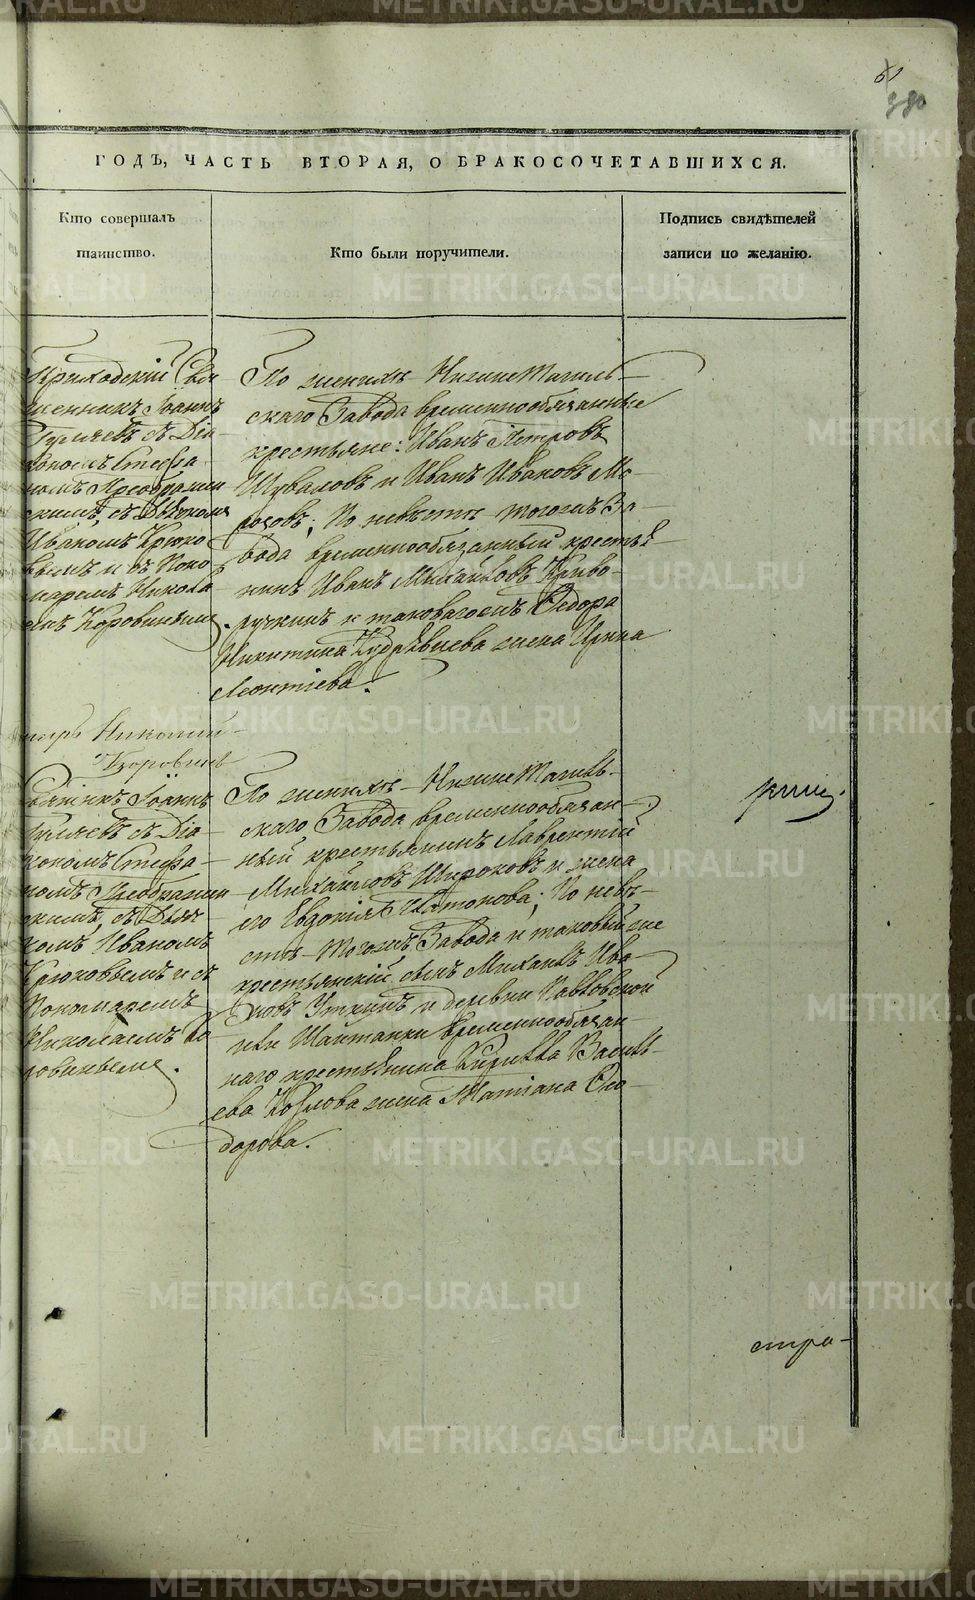 61
ГОДЪ, ЧАСТЬ ВТОРАЯ, О БРАКОСОЧЕТАВШИХСЯ.
Кто совершалъ
таинство.
Кто были поручители.
Подпись свидѣтелей
записи по желанію.
Приходскій Свя-
щенникъ Іоаннъ
Гуляевъ съ Діа-
кономъ Стефа-
номъ Преображен
скимъ, съ Дьячкомъ
Иваномъ Крюко
вымъ и съ Поно
маремъ Никола
емъ Коровинымъ.
По женихѣ Нижнетагиль-
скаго Завода временнообязанные
крестьяне: Иванъ Петровъ
Шуваловъ и Иванъ Ивановъ Мо-
розовъ; По невѣстѣ тогожъ За-
вода временнообязанный кресть-
нинъ Иванъ Михайловъ Криво-
ручкинъ и таковагожъ Ѳедора
Никитина Кудрявцева жена Ирина
Леонтіева.
марь Николай
Коровинъ
Священникъ Іоаннъ
Гуляевъ съ Діа-
кономъ Стефа-
номъ Преображен
скимъ, съ Дьяч
комъ Иваномъ
Крюковымъ и съ
Пономаремъ
Николаемъ Ко-
ровинымъ.
По женихѣ Нижнетагиль-
скаго Завода временнообязан-
ный крестьянинъ Лаврентій
Михайловъ Широковъ и жена
его Евдокія Платонова; По невѣ-
стѣ Тогожъ Завода и таковый же
крестьянскій сынъ Михаилъ Ива-
новъ Уткинъ и деревни Павловской
или Шайтанки временнообязан
наго крестьянина Кирилла Василь-
ева Козлова жена Татіана Ѳео-
дорова.
рищ.
стра-
METRIKI.GASO-URAL.RU